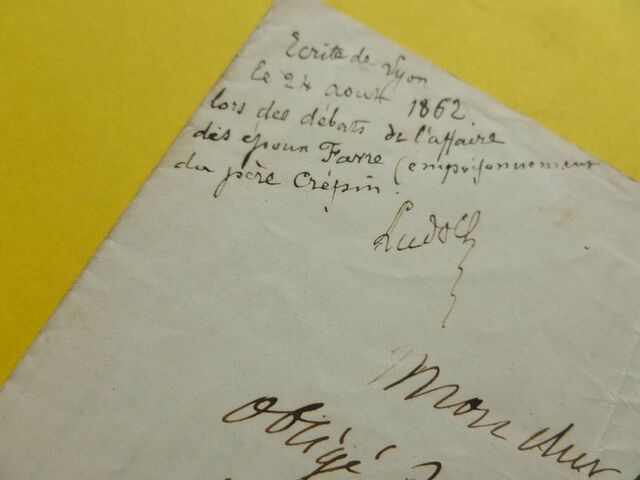 Ecrite de Lyon
le 24 aout 1862
lors des débats de l'affaire
des époux Favre (empoisonnement
du père Crépin.
Mon cher
obligé